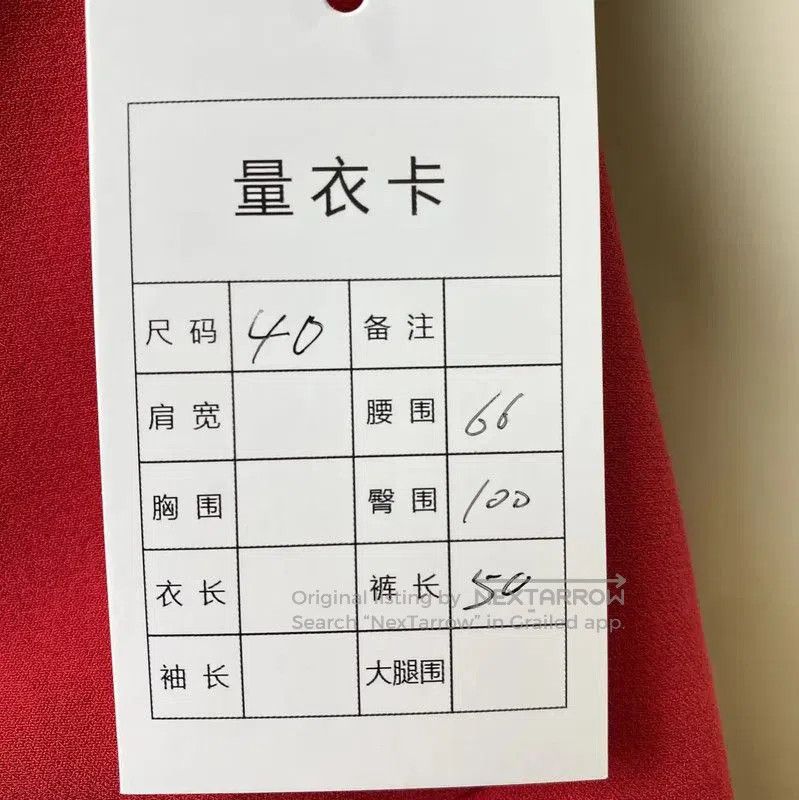 量衣卡
尺码 40 备注
肩宽 腰围 66
胸围 臀围 100
衣长 裤长 50
袖长 大腿围
Original listing by NEXTARROW
Search "NexTarrow" in Grailed app.